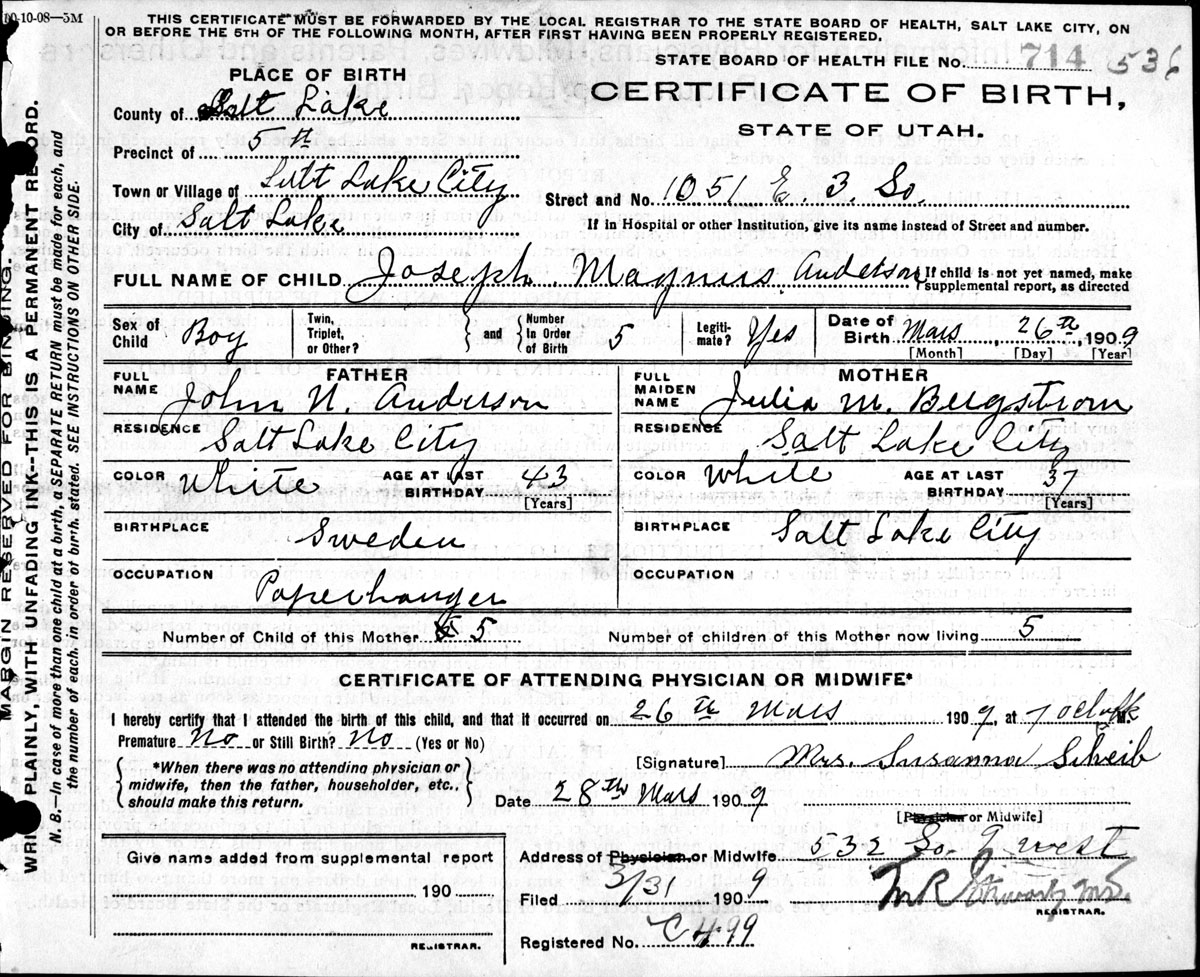 10-10-08—5M
THIS CERTIFICATE MUST BE FORWARDED BY THE LOCAL REGISTRAR TO THE STATE BOARD OF HEALTH, SALT LAKE CITY, ON
OR BEFORE THE 5TH OF THE FOLLOWING MONTH, AFTER FIRST HAVING BEEN PROPERLY REGISTERED.
STATE BOARD OF HEALTH FILE No. 714 536
PLACE OF BIRTH
CERTIFICATE OF BIRTH,
STATE OF UTAH.
County of Salt Lake
Precinct of 5th
Town or Village of Salt Lake City
Street and No. 1051 E. 3. So.
City of Salt Lake
If in Hospital or other Institution, give its name instead of Street and number.
FULL NAME OF CHILD Joseph Magnus Anderson
If child is not yet named, make
supplemental report, as directed
Sex of Child Boy
Twin, Triplet, or Other?
and
Number In Order of Birth 5
Legiti-mate? Yes
Date of Birth Mars 26th, 1909
[Month] [Day] [Year]
FATHER
FULL NAME John N. Anderson
RESIDENCE Salt Lake City
COLOR White AGE AT LAST BIRTHDAY 43
[Years]
BIRTHPLACE Sweden
OCCUPATION Paperhanger
MOTHER
FULL MAIDEN NAME Julia M. Bergstrom
RESIDENCE Salt Lake City
COLOR White AGE AT LAST BIRTHDAY 37
[Years]
BIRTHPLACE Salt Lake City
OCCUPATION
Number of Child of this Mother 5
Number of children of this Mother now living 5
CERTIFICATE OF ATTENDING PHYSICIAN OR MIDWIFE*
I hereby certify that I attended the birth of this child, and that it occurred on 26th Mars 1909, at 7 oclock M.
Premature No or Still Birth? No (Yes or No)
*When there was no attending physician or
midwife, then the father, householder, etc.,
should make this return.
[Signature] Mrs. Susanna Scheib
Date 28th Mars 1909
[Physician or Midwife]
Give name added from supplemental report
190
REGISTRAR.
Address of Physician or Midwife 532 So. 7 West
Filed 3/31 1909
REGISTRAR.
Registered No. C 499
MARGIN RESERVED FOR BINDING.
WRITE PLAINLY, WITH UNFADING INK--THIS IS A PERMANENT RECORD.
N. B.—In case of more than one child at a birth, a SEPARATE RETURN must be made for each, and
the number of each, in order of birth, stated. SEE INSTRUCTIONS ON OTHER SIDE.